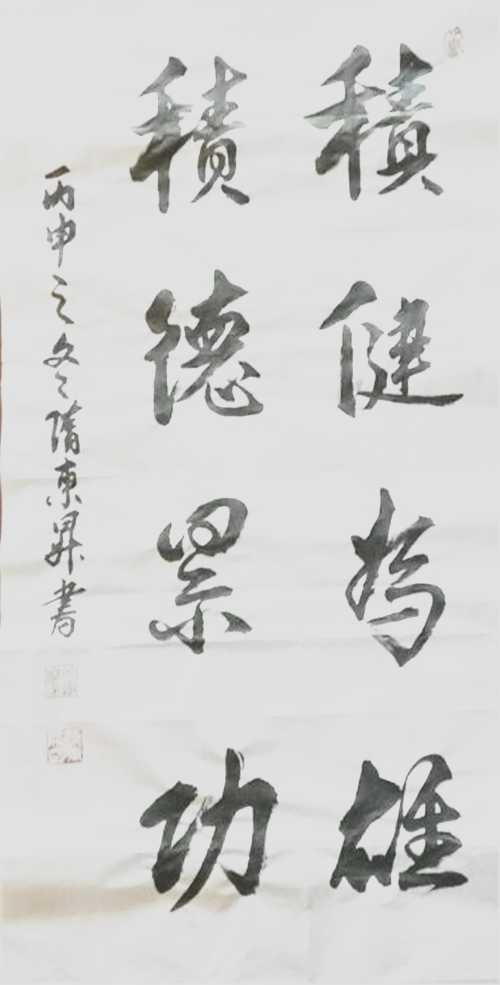 積健為雄
積德累功
丙申之冬隋東昇書